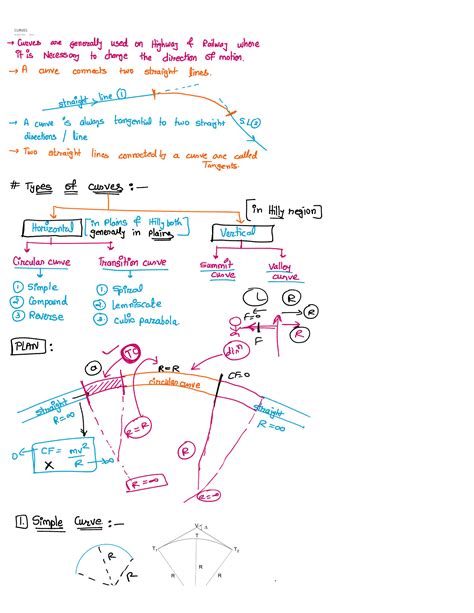 CURVES
→ Curves are generally used on Highway & Railway where
it is Necessary to change the direction of motion.
→ A curve connects two straight lines.
straight line ①
S.L②
→ A curve is always tangential to two straight
directions / line
→ Two straight lines connected by a curve are called
Tangents.
# Types of curves :—
Horizontal
[in Plains & Hilly both
generally in plains]
Vertical
[in Hilly region]
Circular curve
Transition curve
Summit
curve
Valley
curve
① Simple
② Compound
③ Reverse
① Spiral
② Lemniscate
③ Cubic parabola
L
R
F=0
R
F
R
PLAN :
a
TC
R=R
dirⁿ
circular curve
CF=0
straight
R=∞
straight
R=∞
R=R
R
0
CF = mv²/R
X
0
R=∞
R=∞
1. Simple Curve :—
R
R
V
T
T₁
T₂
R
R